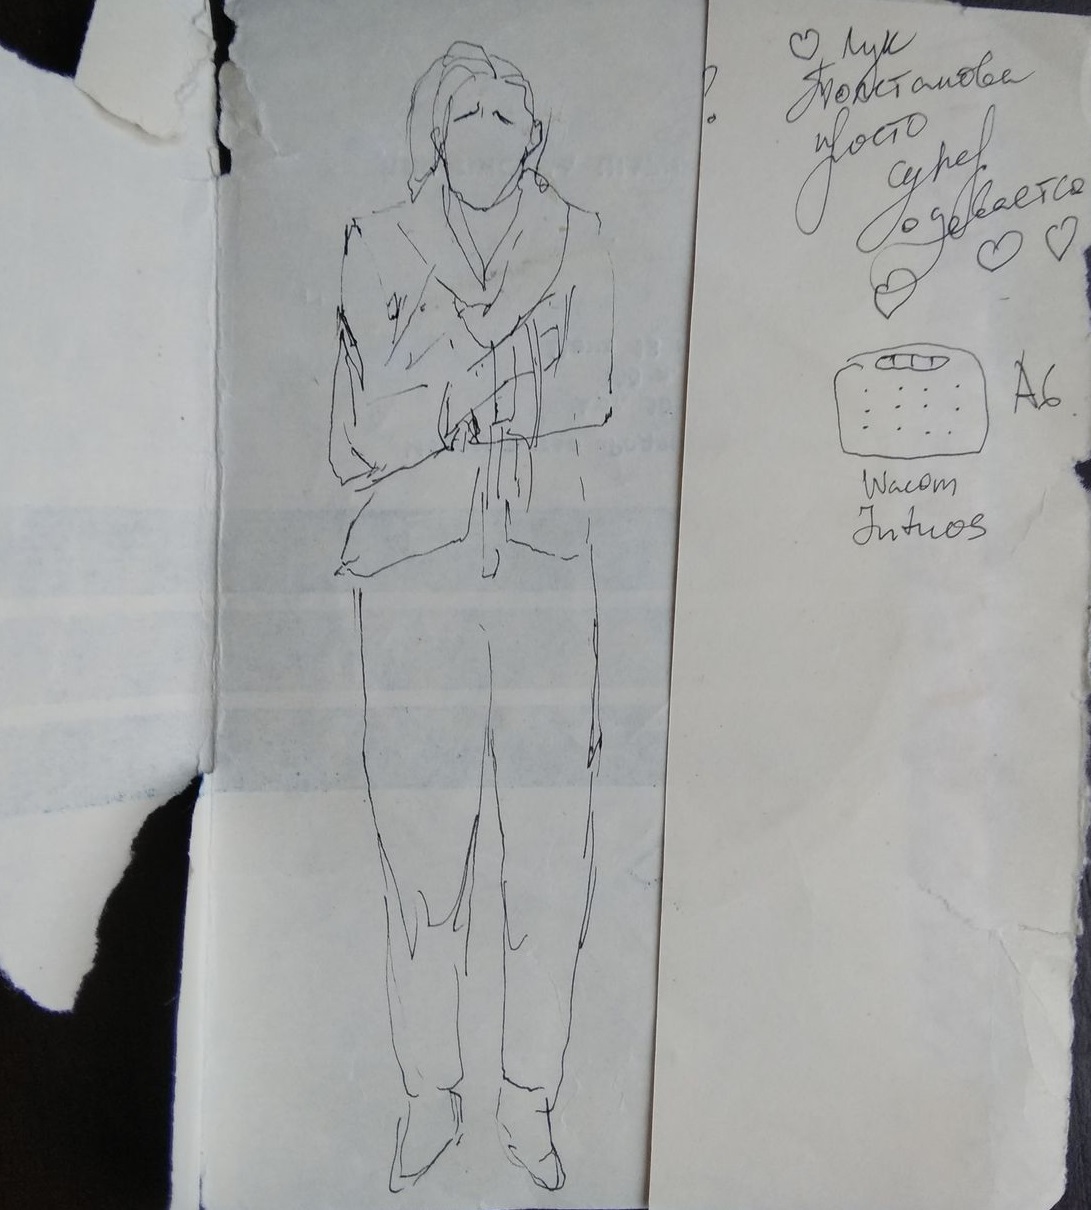 Лук
Толстанова
просто
супер
одевается
A6
Wacom
Intuos